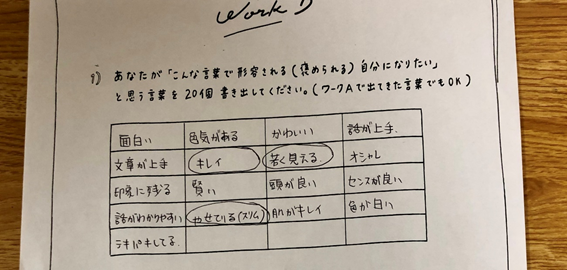 Work D
9) あなたが「こんな言葉で形容される(褒められる)自分になりたい」
と思う言葉を20個書き出してください。(ワークAで出てきた言葉でもOK)
面白い 色気がある かわいい 話が上手.
文章が上手 キレイ 若く見える オシャレ
印象に残る 賢い 頭が良い センスが良い
話がわかりやすい やせている(スリム) 肌がキレイ 色が白い
テキパキしてる.